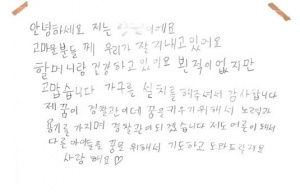 안녕하세요 저는 이에요
고마운분들 께 우리가 잘 지내고 있어요
할머니랑 건강하고 있기요 뵌적이 없지만
고맙습니다 가구를 설치를 해주셔서 감사합니다
제 꿈이 경찰관이데 꿈을 키우기위해서 노력과
용기를 가지며 경찰관이 되겠습니다 저도 어른이 돼서
다른 아이들을 꿈을 위해서 기도하고 도와드릴게요
사랑 해요♡